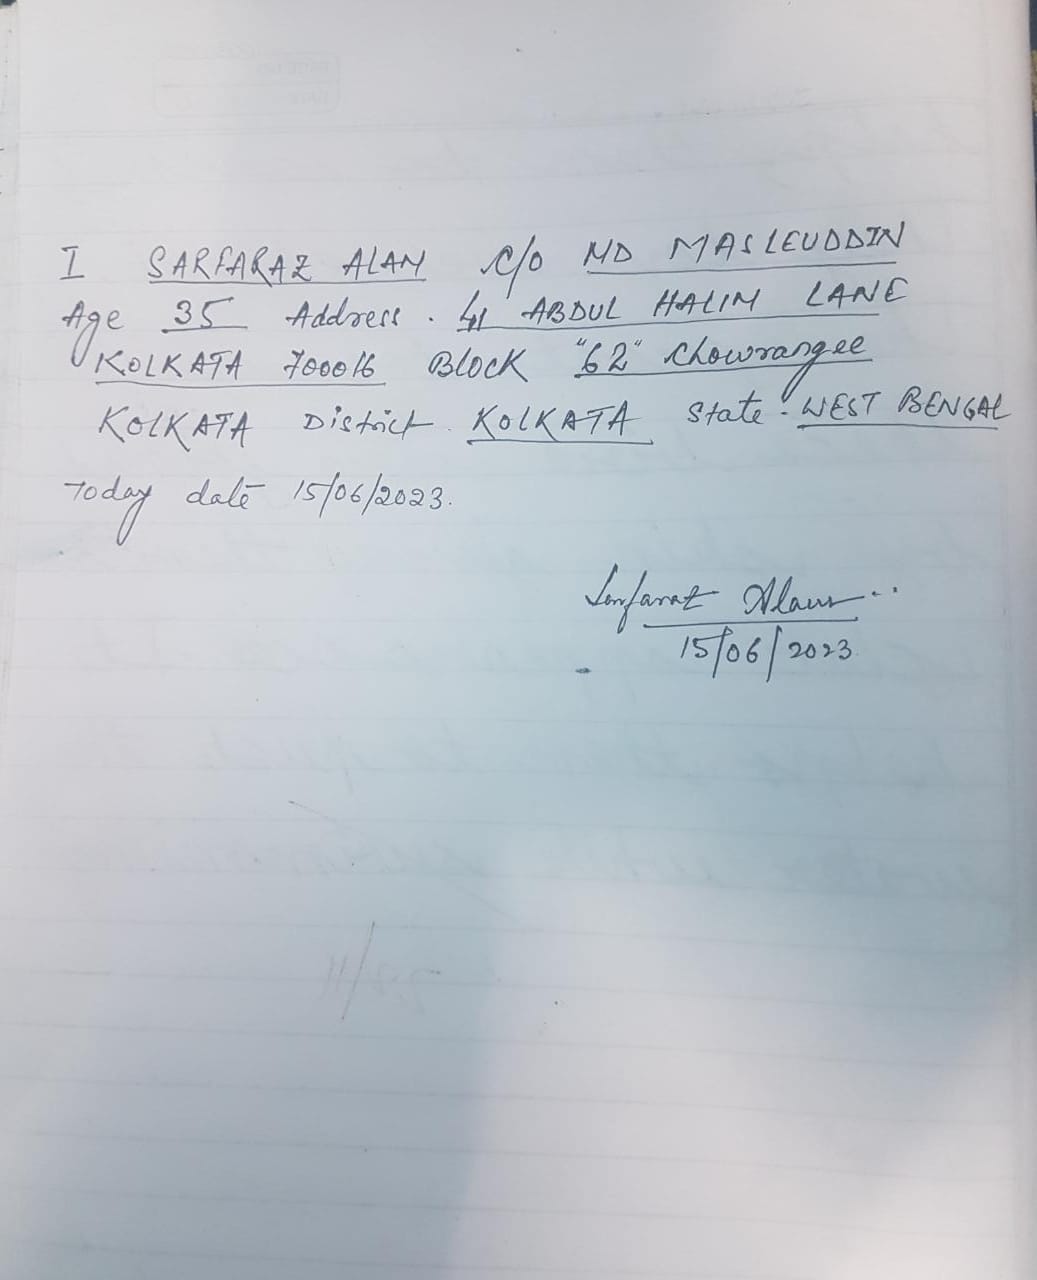 I SARFARAZ ALAM C/O MD MASLEUDDIN
Age 35 Address. 41 ABDUL HALIM LANE
KOLKATA 700016 Block "62" Chowrangee
KOLKATA District. KOLKATA State. WEST BENGAL
Today date 15/06/2023.
Sarfaraz Alam
15/06/2023